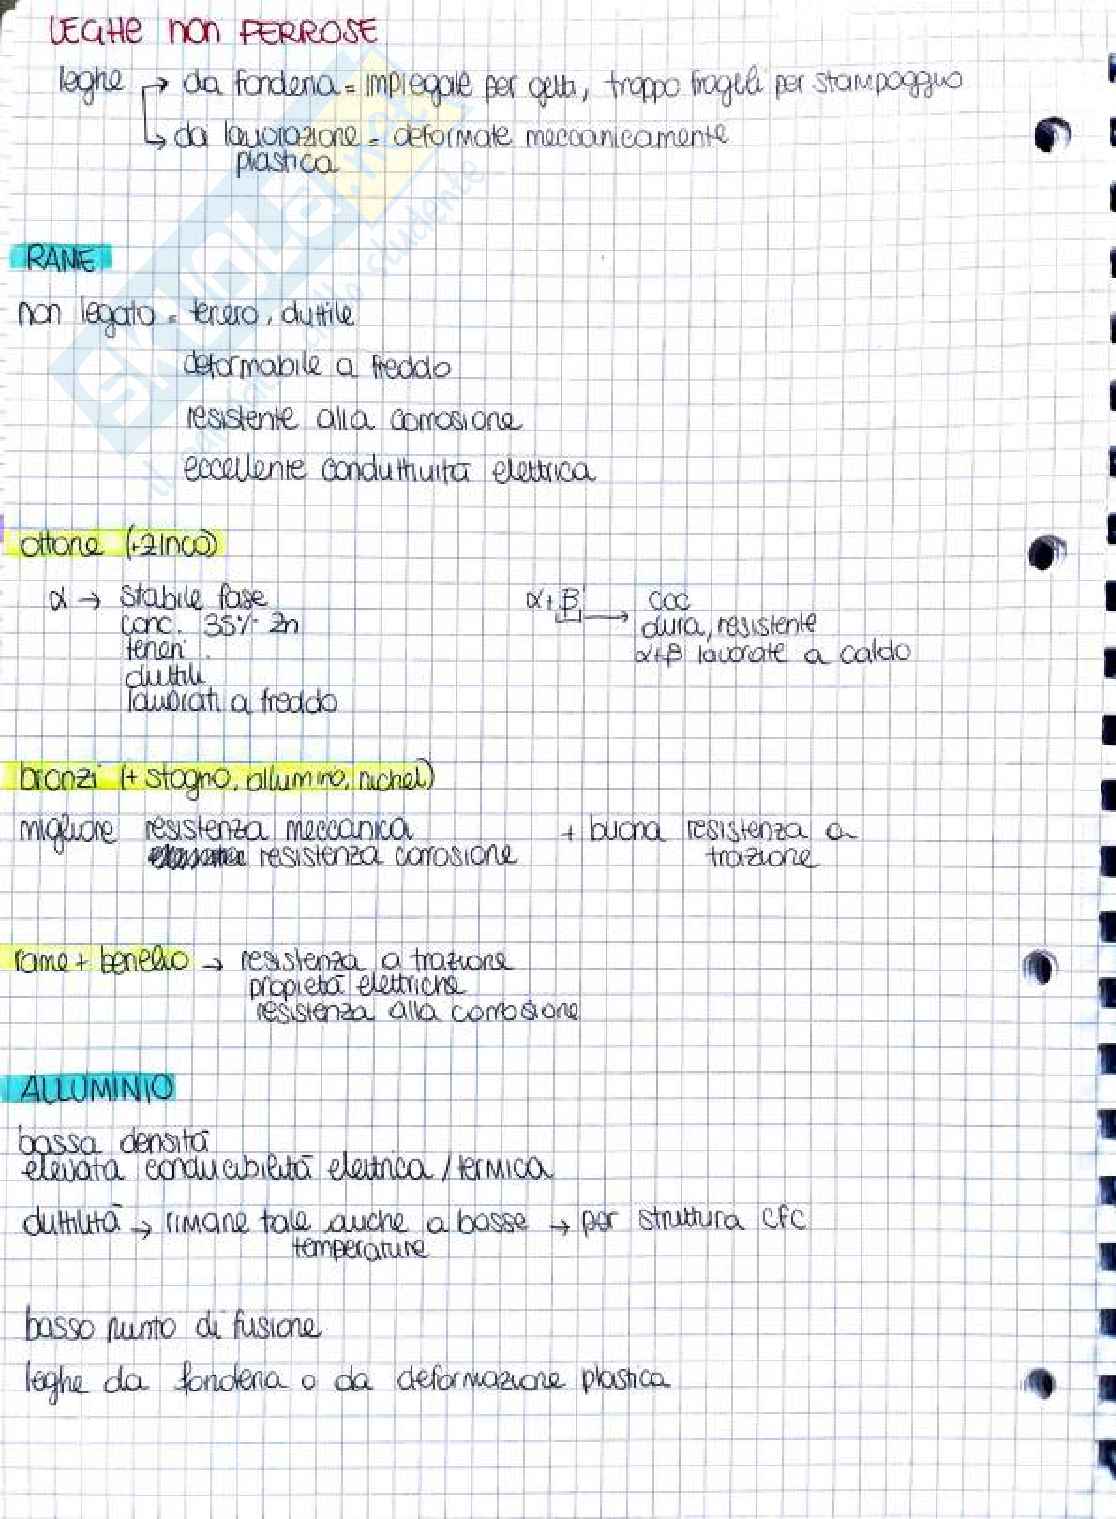 LEGHE non FERROSE
leghe → da fonderia = impiegate per getti, troppo fragili per stampaggio
↳ da lavorazione = deformate meccanicamente
plastica
RAME
non legato = tenero, duttile
deformabile a freddo
resistente alla corrosione
eccellente conduttività elettrica
ottone (+zinco)
α → stabile fase
conc. 35% Zn
teneri
duttili
lavorati a freddo
α+β → CCC
dura, resistente
α+β lavorate a caldo
bronzi (+ stagno, alluminio, nichel)
migliore resistenza meccanica + buona resistenza a
resistenza corrosione trazione
rame + berillio → resistenza a trazione
propietà elettriche
resistenza alla corrosione
ALLUMINIO
bassa densità
elevata conducibilità elettrica / termica
duttilità → rimane tale anche a basse → per struttura CFC
temperature
basso punto di fusione
leghe da fonderia o da deformazione plastica
SKUOLA.net